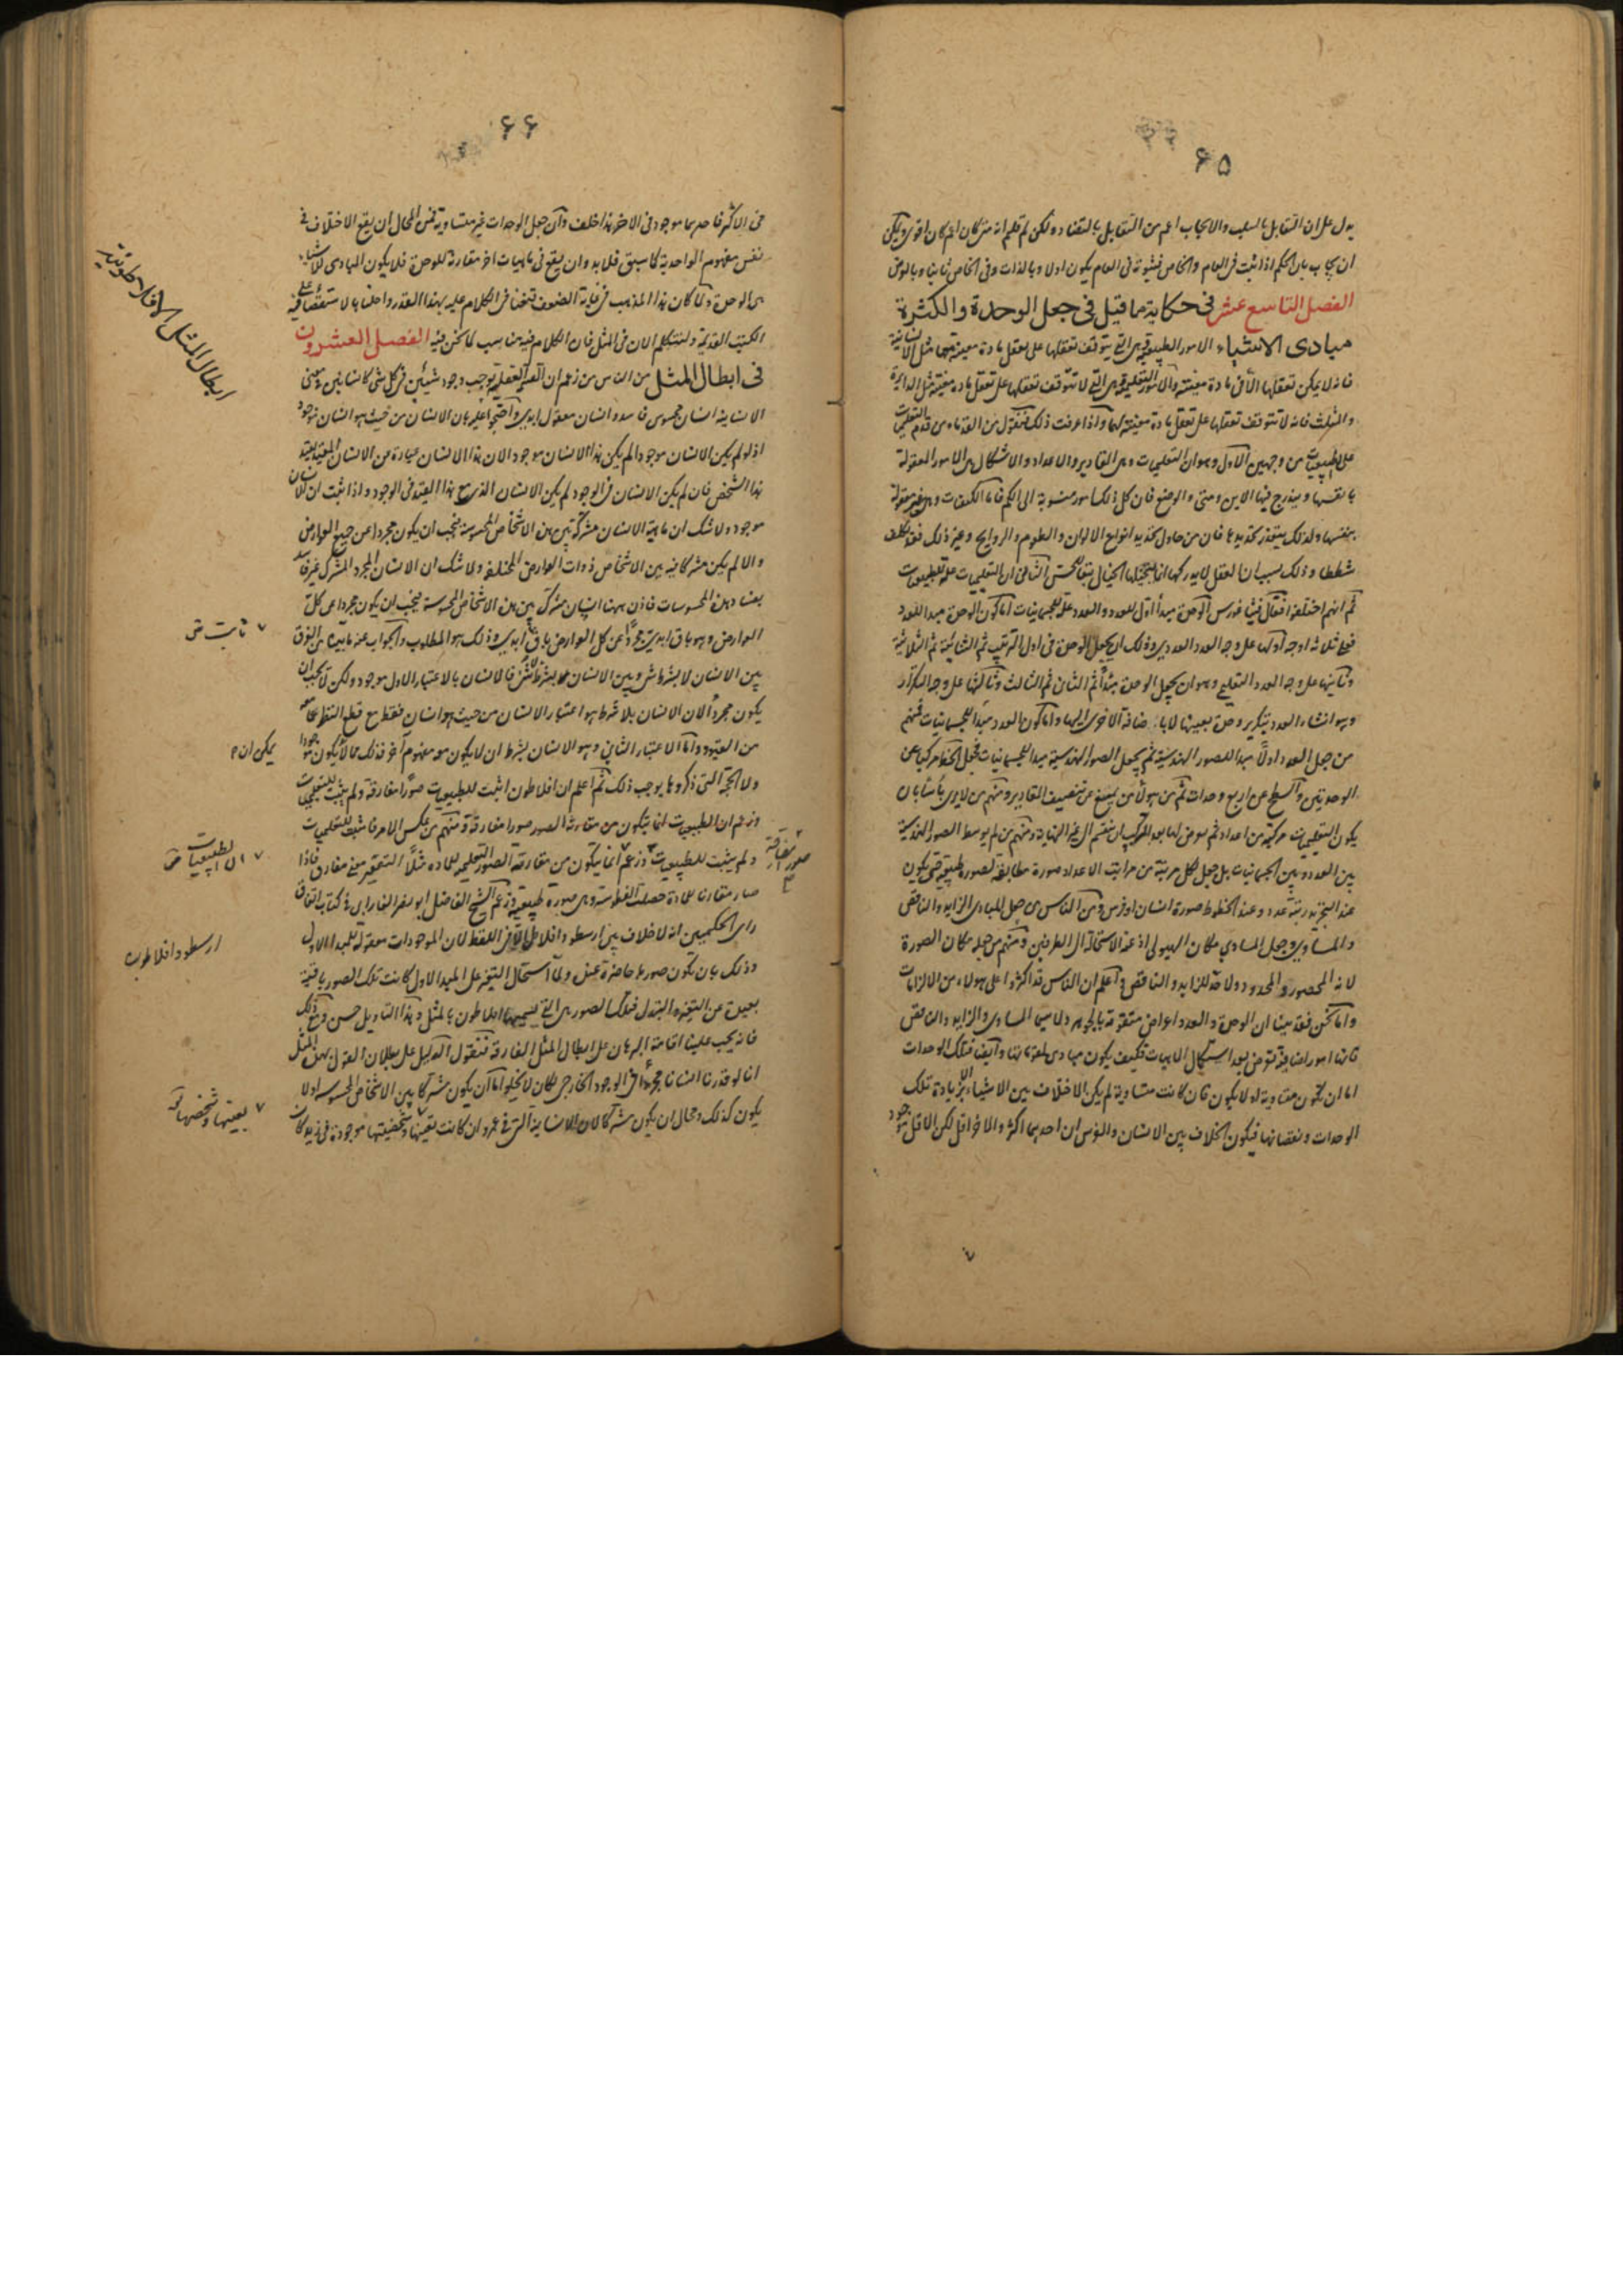 ۶۵
يدل على ان التقابل بالسلب والايجاب اعم من التقابل بالتضاد ولكن لم قلتم انه متى كان اعم كان اقوى ويمكن
ان يجاب بان الحكم اذا ثبت فى العام والخاص فثبوته فى العام يكون اولا وبالذات وفى الخاص ثانيا وبالعرض
الفصل التاسع عشر فى حكاية ما قيل فى جعل الوحدة والكثرة
مبادى الاشياء الامور الطبيعية هى التى يتوقف تعقلها على تعقل مادة معينة لها مثل الانسانية
فانه لا يمكن تعقلها الا فى مادة معينة والامور التعليمية هى التى لا تتوقف تعقلها على تعقل مادة معينة مثل الدايرة
والمثلث فانه لا تتوقف تعقلها على تعقل مادة معينة لهما واذا عرفت ذلك فنقول من القدماء من قدم التعليميات
على الطبيعيات من وجهين الاول وهو ان التعليميات وهى المقادير والاعداد والاشكال هى الامور المعقولة
بانفسها ويندرج فيها الاين ومتى والوضع فان كل ذلك امور منسوبة الى الكم فاما الكيفيات وهى غير معقولة
بنفسها ولذلك يتعذر تحديدها فان من حاول تحديد انواع الالوان والطعوم والروايح وغير ذلك فقد تكلف
شططا وذلك بسبب ان العقل لا يدركها انما يتخيلها الخيال تبعا للحس الثانى ان التعليميات علة للطبيعيات
ثم انهم اختلفوا فقال فيثاغورس الوحدة مبدأ اول للعدد والعدد علة للجسمانيات اما كون الوحدة مبدأ للعدد
فعلى ثلثة اوجه اولها على وجه العدد العددى وذلك ان يجعل الوحدة فى اول الترتيب ثم الثنائية ثم الثلاثية
وثانيها على وجه العدد التعليمى وهو ان يجعل الوحدة مبدأ ثم الثانى ثم الثالث وثالثها على وجه التكرار
وهو انشاء العدد بتكرير وحدة بعينها لا باضافة الاخرى اليها واما كون العدد مبدأ للجسمانيات فمنهم
من جعل العدد اولا مبدأ للصور الهندسية ثم يجعل الصور الهندسية مبدأ للجسمانيات فجعل الخط مركبا عن
الوحدتين والسطح عن اربع وحدات ثم من هولاء من يمنع عن تنصيف المقادير ومنهم من لا يرى باسا بان
يكون التعليميات مركبة من اعداد ثم يعرض لها بعد التركيب ان ينقسم الى غير النهاية ومنهم من لم يوسط الصور الهندسية
بين العدد وبين الجسمانيات بل جعل لكل مرتبة من مراتب الاعداد صورة مطابقة لصورة طبيعية حتى يكون
عند التجريد رتبة عدد وعند الخلط صورة انسان او فرس ومن الناس من جعل المبادى الزايد والناقص
والمساوى وجعل المساوى مكان الهيولى اذ عنه الاستحالة الى الطرفين ومنهم من جعله مكان الصورة
لانه المحصور والمحدود ولا حد للزايد والناقص واعلم ان الناس قد اكثروا على هولاء من الالزامات
واما نحن فقد بينا ان الوحدة والعدد اعراض متقومة بالجوهر ولا سيما المساوى والزايد والناقص
فانها امور اضافية تعرض بعد استكمال الماهيات فكيف يكون مبادى لمقوماتها وايضا فتلك الوحدات
اما ان يكون متساوية او لا يكون فان كانت متساوية لم يكن الاختلاف بين الاشياء الا بزيادة تلك
الوحدات ونقصانها فيكون الخلاف بين الانسان والفرس ان احدهما اكثر والاخر اقل لكن الاقل موجود
۶۶
فى الاكثر فاحدهما موجود فى الاخر هذا خلف وان جعل الوحدات غير متساوية فمن المحال ان يقع الاختلاف فى
نفس مفهوم الواحدية كما سبق فلا بد وان يقع فى ماهيات اخر مقارنة للوحدة فلا يكون المبادى للاشياء
هى الوحدة ولما كان هذا المذهب فى غاية الضعف قنعنا فى الكلام عليه بهذا القدر واحلنا بالاستقصاء فيه على
الكتب القديمة ولنتكلم الان فى المثل فان الكلام فيه مناسب لما نحن فيه الفصل العشرون
فى ابطال المثل من الناس من زعم ان القسمة العقلية توجب وجود شيئين فى كل شى كانسانين فى معنى
الانسانية انسان محسوس فاسد وانسان معقول ابدى واحتجوا عليه بان الانسان من حيث هو انسان موجود
اذ لو لم يكن الانسان موجودا لم يكن هذا الانسان موجودا لان هذا الانسان عبارة عن الانسان المقيد بقيد
هذا الشخص فان لم يكن الانسان فى الوجود لم يكن الانسان الذى مع هذا القيد فى الوجود واذا ثبت ان الانسان
موجود ولا شك ان ماهية الانسان مشتركة بين هذه الاشخاص المحسوسة فيجب ان يكون مجردا عن جميع العوارض
والا لم يكن مشتركا فيه بين الاشخاص ذوات العوارض المختلفة ولا شك ان الانسان المجرد المشترك غير فاسد
بفساد هذه المحسوسات فاذن ههنا انسان مشترك بين هذه الاشخاص المحسوسة فيجب ان يكون مجردا عن كل
العوارض وهو باق ابدى مجردا عن كل العوارض باق ابدى وذلك هو المطلوب والجواب عنه ما بينا من الفرق
بين الانسان لا بشرط شى وبين الانسان بشرط لا شى فالانسان بالاعتبار الاول موجود ولكن لا يجب ان
يكون مجردا لان الانسان بلا شرط هو اعتبار الانسان من حيث هو انسان فقط مع قطع النظر عما معه
من القيود واما الاعتبار الثانى وهو الانسان بشرط ان لا يكون معه مفهوم اخر فذلك محال ان يكون موجودا
ولا الحجة التى ذكروها يوجب ذلك ثم اعلم ان افلاطون اثبت للطبيعيات صورا مفارقة ولم يثبت للتعليميات
وزعم ان الطبيعيات انما يتكون من مقارنة الصور صورا مفارقة ومنهم من عكس الامر فاثبت للتعليميات
ولم يثبت للطبيعيات وزعم انما يتكون من مقارنة الصور التعليمية للمادة مثلا التقعير معنى مفارق فاذا
صار مقارنا للمادة حصلت الفطوسة وهى صورة طبيعية وزعم الشيخ الفاضل ابو نصر الفارابى فى كتاب اتفاق
راى الحكيمين انه لا خلاف بين ارسطو وافلاطن الا فى اللفظ لان الموجودات معقولة للمبدأ الاول
وذلك بان تكون صورها حاضرة عنده ولما استحال التغير على المبدا الاول كانت تلك الصور باقية
بعيدة عن التغير والتبدل فتلك الصور هى التى يسميها افلاطون بالمثل وهذا التاويل حسن ومع ذلك
فانه يجب علينا اقامة البرهان على ابطال المثل المفارقة فنقول الدليل على بطلان القول بهذه المثل
انا لو قدرنا انسانا مجردا فى الوجود الخارجى لكان لا يخلو اما ان يكون مشتركا بين الاشخاص المحسوسة او لا
يكون كذلك ومحال ان يكون مشتركا لان الانسانية التى فى عمرو ان كانت بعينها وشخصيتها موجودة فى زيد كان
ابطال المثل الافلاطونية
ثابت
يمكن ان
صور مفارقة
الطبيعيات
ارسطو وافلاطون
بعينها وشخصها